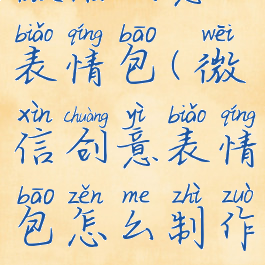 biǎo qíng bāo wēi
表情包(微
xìn chuàng yì biǎo qíng
信创意表情
bāo zěn me zhì zuò
包怎么制作